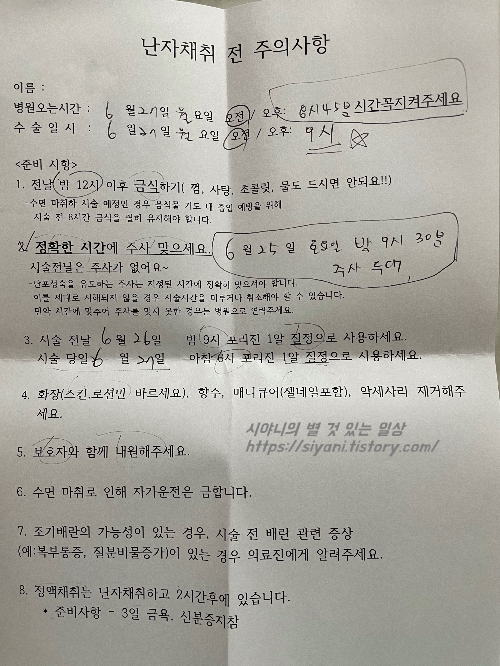 난자채취 전 주의사항
이름 :
병원오는시간 : 6 월 27일 월요일 오전 / 오후: 8시45분 시간꼭지켜주세요
수 술 일 시 : 6 월 27일 월요일 오전 / 오후: 9시
<준비 사항>
1. 전날 밤 12시 이후 금식하기( 껌, 사탕, 초콜릿, 물도 드시면 안되요!!)
-수면 마취하 시술 예정인 경우 음식물 기도 내 흡인 예방을 위해
시술 전 8시간 금식을 필히 유지해야 합니다.
2. 정확한 시간에 주사 맞으세요. 6월 25일 토요일 밤 9시 30분
주사 두대
시술전날은 주사가 없어요~
-난포성숙을 유도하는 주사는 지정된 시간에 정확히 맞으셔야 합니다.
이를 제대로 시행되지 않을 경우 시술시간을 미루거나 취소해야 할 수 있습니다.
만약 시간에 맞추어 주사를 맞지 못한 경우는 병원으로 연락주세요.
3. 시술 전날 6월 26일 밤 9시 포리진 1알 질정으로 사용하세요.
시술 당일 6 월 27일 아침 6시 포리진 1알 질정으로 사용하세요.
4. 화장(스킨,로션만 바르세요), 향수, 매니큐어(젤네일포함), 악세사리 제거해주
세요.
시야니의 별 것 있는 일상
https://siyani.tistory.com/
5. 보호자와 함께 내원해주세요.
6. 수면 마취로 인해 자가운전은 금합니다.
7. 조기배란의 가능성이 있는 경우, 시술 전 배란 관련 증상
(예:복부통증, 질분비물증가)이 있는 경우 의료진에게 알려주세요.
8. 정액채취는 난자채취하고 2시간후에 있습니다.
* 준비사항 - 3일 금욕, 신분증지참